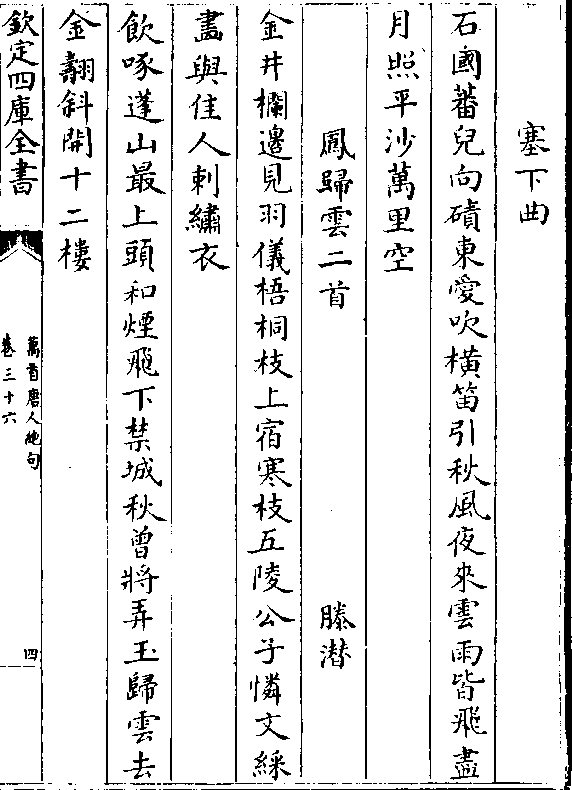 塞下曲
石國蕃兒向磧東愛吹橫笛引秋風夜來雲雨皆飛盡
月照平沙萬里空
鳳歸雲二首　滕潜
金井欄邊見羽儀梧桐枝上宿寒枝五陵公子憐文綵
畵與佳人刺繡衣
飲啄蓬山最上頭和煙飛下禁城秋曾將弄玉歸雲去
金翿斜開十二樓
欽定四庫全書
萬首唐人絶句
卷三十六
四